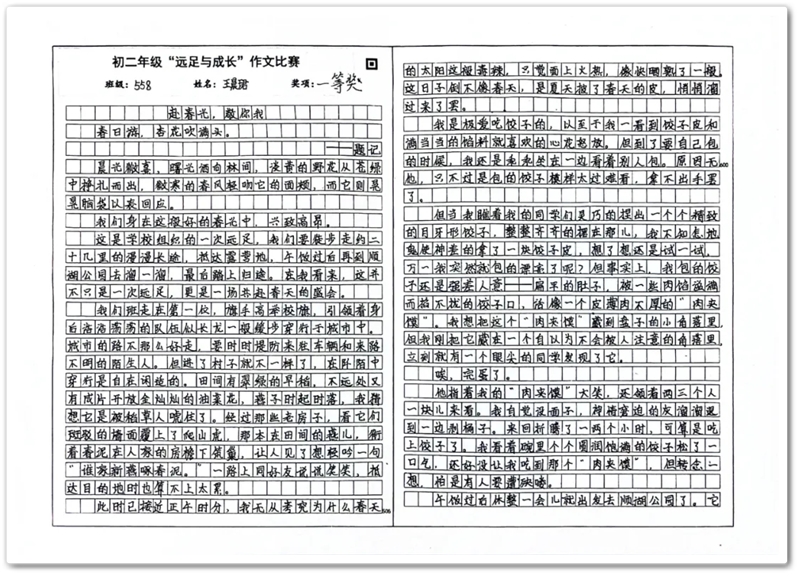 初二年级“远足与成长”作文比赛
班级：558 姓名：王昊珺 奖项：一等奖
赴春光，敬你我
春日游，杏花吹满头。
——题记
晨光微熹，曙光洒向林间，淡黄的野花从苍绿
中挣扎而出，微寒的春风轻吻它的面颊，而它则晃
晃脑袋以表回应。
我们身在这般好的春光中，兴致高昂。
这是学校组织的一次远足，我们要徒步走约二
十几里的漫漫长途，抵达露营地，午饭过后再到顺
湖公园去溜一溜，最后踏上归途。在我看来，这并
不只是一次远足，更是一场共赴春天的盛会。
我们班走在第一位，旗手高举校旗，引领着身
后浩浩荡荡的队伍似长龙一般缓步穿行于城市中。
城市的路不那么好走，要时时提防来往车辆和来路
不明的陌生人。但进了村子就不一样了，在阡陌中
穿行是自在闲适的。田间有翠绿的早稻，不远处又
有成片开放金灿灿的油菜花，燕子时起时落，我猜
想它是被稻草人唬住了。经过那些老房子，看它们
斑驳的墙面覆上了爬山虎，那本在田间的燕儿，衔
着春泥在人家的房檐下筑巢，让人见了想轻吟一句
“谁家新燕啄春泥。”一路上同好友说说笑笑，抵
达目的地时也算不上太累。
此时已接近正午时分，我无从考究为什么春天
500
的太阳这般毒辣，只觉面上火热，像快晒熟了一般。
这日子倒不像春天，是夏天披了春天的皮，悄悄溜
过来了罢。
我是极爱吃饺子的，以至于我一看到饺子皮和
满当当的馅料就喜欢的心花怒放。但到了要自己包
的时候，我还是乖乖坐在一边看着别人包。原因无
600
他，只不过是包的饺子模样太过难看，拿不出手罢
了。
但当我瞧着我的同学们灵巧的捏出一个个精致
的月牙形饺子，整整齐齐的摆在那儿，我不知怎地
鬼使神差的拿了一块饺子皮，想了想还是试一试，
万一我突然就包的漂亮了呢？但事实上，我包的饺
子还是强差人意——扁平的肚子，被一些肉馅溢满
而掐不拢的饺子口，活像一个皮薄肉不厚的“肉夹
馍”。我想把这个“肉夹馍”藏到盘子的小角落里，
但我刚把它藏在一个自以为不会被人注意的角落里，
立刻就有一个眼尖的同学发现了它。
唉，完蛋了。
他指着我的“肉夹馍”大笑，还领着两三个人
一块儿来看。我自觉没面子，捧着
到一边剁桶子。来回折腾了一两个小时，可算是吃
上饺子了。我看着碗里个个圆润饱满的饺子松了一
口气，还好没让我吃到那个“肉夹馍”，但转念一
想，怕是有人要遭殃喽。
午饭过后休整一会儿就出发去顺湖公园了。它